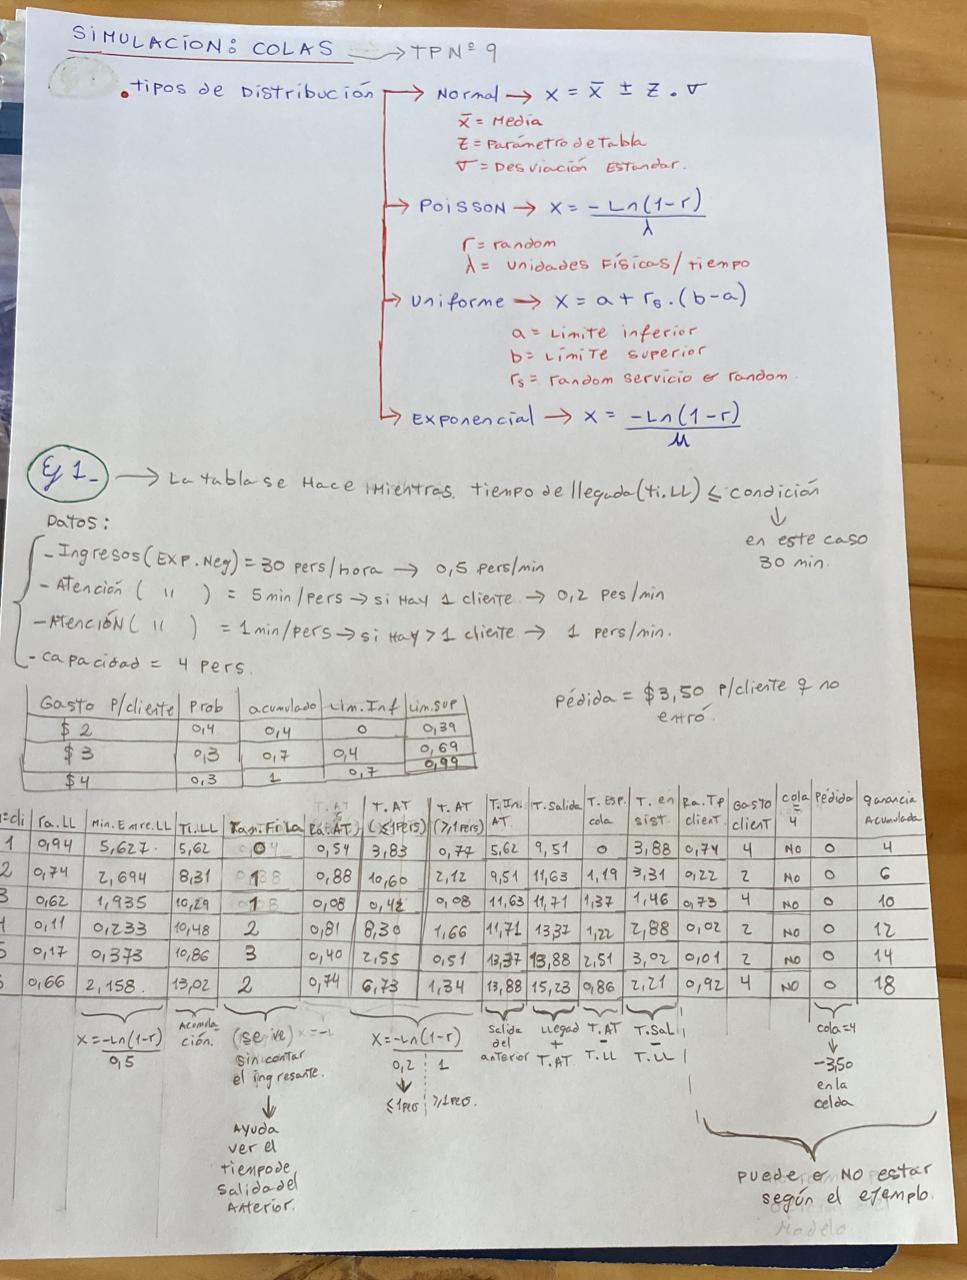 SIMULACION: COLAS → TP Nº 9
• Tipos de Distribución → Normal → X = x̄ ± Z . σ
x̄ = Media
Z = Parámetro de Tabla
σ = Desviación Estandar.
→ POISSON → X = -Ln(1-r) / λ
r = random
λ = Unidades Físicas/tiempo
→ Uniforme → X = a + rs . (b-a)
a = Limite inferior
b = Límite superior
rs = random servicio o random.
→ Exponencial → X = -Ln(1-r) / μ
Ej 1- → La tabla se Hace Mientras tiempo de llegada (ti.LL) ≤ condición
↓
en este caso
30 min.
Datos:
- Ingresos (EXP. Neg) = 30 pers/hora → 0,5 Pers/min
- Atención ( " ) = 5 min/pers → si Hay 1 cliente → 0,2 pes/min
- Atención ( " ) = 1 min/pers → si Hay > 1 cliente → 1 pers/min.
- capacidad = 4 pers.
Pédida = $3,50 P/cliente q no
entró.
Gasto P/cliente | Prob | acumulado | Lim. Inf | Lim. SUP
$ 2 | 0,4 | 0,4 | 0 | 0,39
$ 3 | 0,3 | 0,7 | 0,4 | 0,69
$ 4 | 0,3 | 1 | 0,7 | 0,99
=cli | ra. LL | Min. Entre. LL | Ti. LL | Tam. Fila | Ra(AT) | T. AT (≤1Pers) | T. AT (≥1pers) | T. Ini. AT. | T. Salida | T. Esp. cola | T. en sist | Ra. Tp client. | Gasto client | cola = 4 | Pédido | ganancia Acumulada
1 | 0,94 | 5,627. | 5,62 | 0 | 0,54 | 3,83 | 0,77 | 5,62 | 9,51 | 0 | 3,88 | 0,74 | 4 | NO | 0 | 4
2 | 0,74 | 2,694 | 8,31 | 1 | 0,88 | 10,60 | 2,12 | 9,51 | 11,63 | 1,19 | 3,31 | 0,22 | 2 | NO | 0 | 6
3 | 0,62 | 1,935 | 10,29 | 1 | 0,08 | 0,42 | 0,08 | 11,63 | 11,71 | 1,37 | 1,46 | 0,73 | 4 | NO | 0 | 10
0,11 | 0,233 | 10,48 | 2 | 0,81 | 8,30 | 1,66 | 11,71 | 13,37 | 1,22 | 2,88 | 0,02 | 2 | NO | 0 | 12
0,17 | 0,373 | 10,86 | 3 | 0,40 | 2,55 | 0,51 | 13,37 | 13,88 | 2,51 | 3,02 | 0,01 | 2 | NO | 0 | 14
0,66 | 2,158. | 13,02 | 2 | 0,74 | 6,73 | 1,34 | 13,88 | 15,23 | 0,86 | 2,21 | 0,92 | 4 | NO | 0 | 18
X = -Ln(1-r) / 0,5
Acumula-
ción.
(se ve)
sin contar
el ingresante.
↓
Ayuda
ver el
tiempo de
salida del
Anterior.
X = -Ln(1-r) / 0,2 ¦ 1
↓
≤1 pers ¦ ≥1 pers.
Salida
del
anterior
LLegad
+
T. AT.
T. AT
-
T. LL
T. Sal
-
T. LL
cola=4
↓
-3,50
en la
celda
puede o NO estar
según el ejemplo.
Modelo